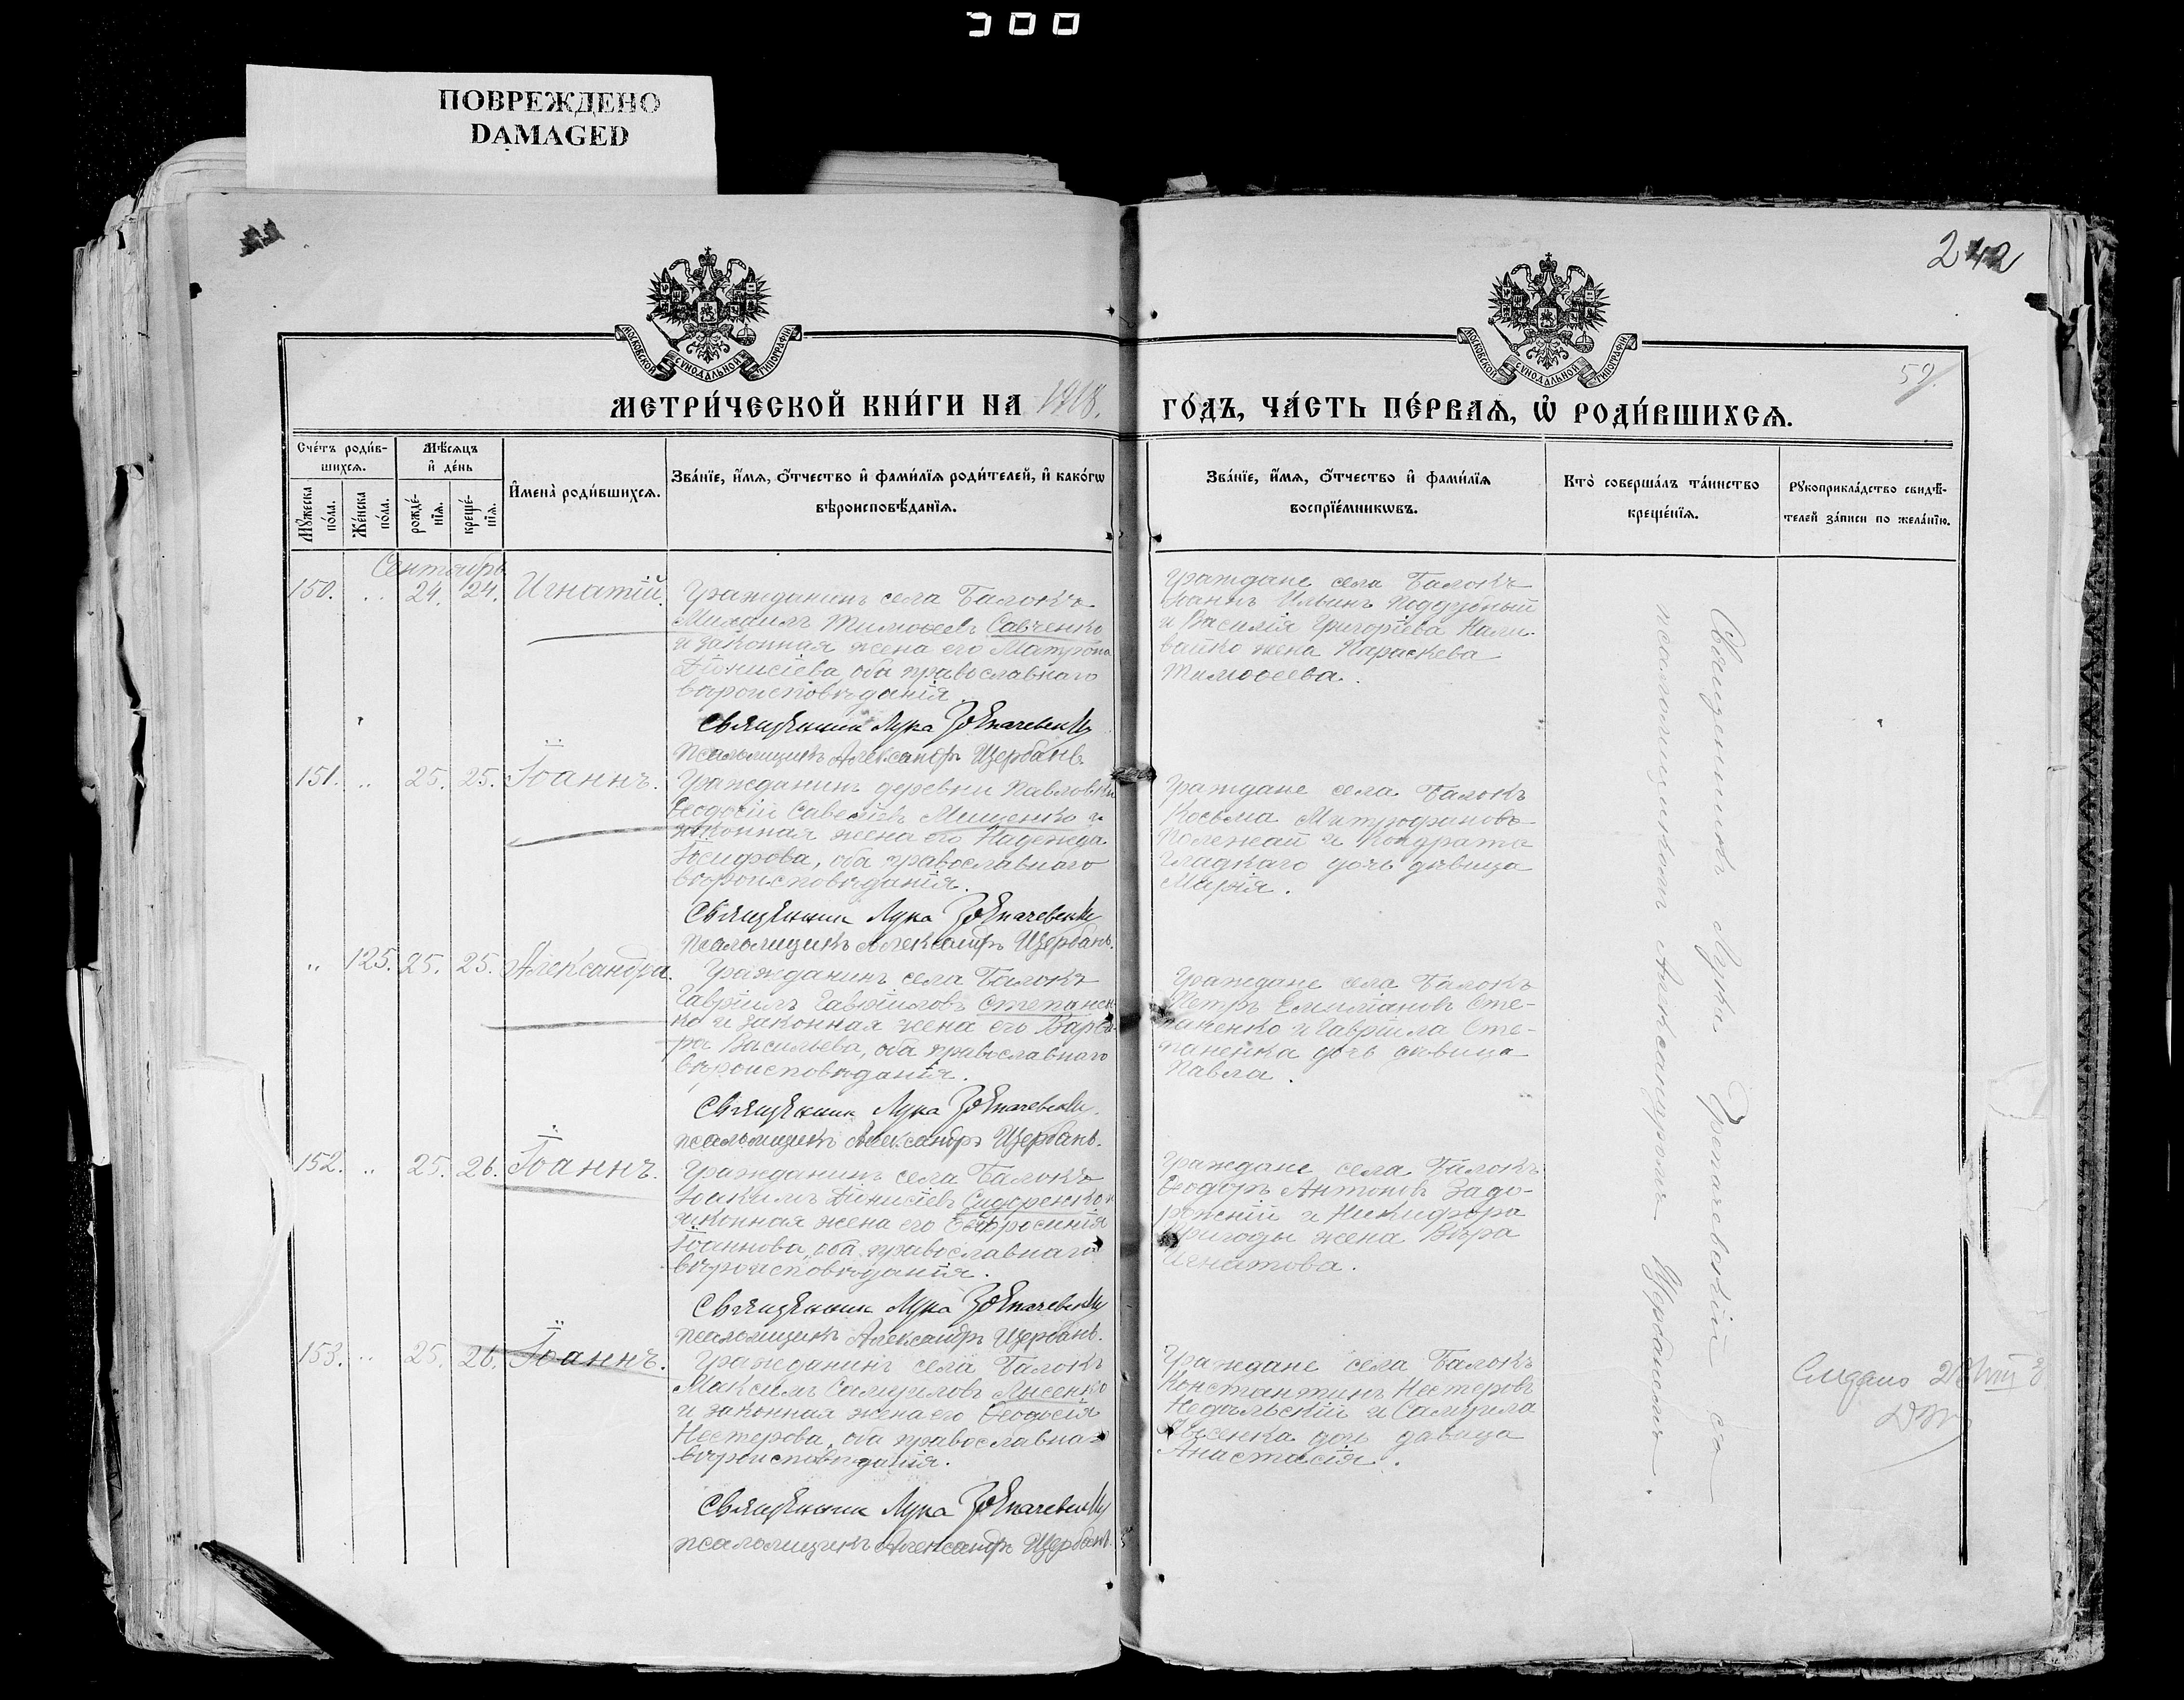 ПОВРЕЖДЕНО
DAMAGED
242
МОСКОВСКОЙ СѴНОДАЛЬНОЙ ТИПОГРАФІИ
МОСКОВСКОЙ СѴНОДАЛЬНОЙ ТИПОГРАФІИ
59.
МЕТРИ́ЧЕСКОЙ КНИ́ГИ НА 1918. ГО́ДЪ, ЧА́СТЬ ПЕ́РВАѦ, Ѡ РОДИ́ВШИХСѦ.
Сче́тъ роди́в-
шихсѧ.
Мѣ́сѧцъ
и҆ де́нь
Мꙋ́жеска по́ла.
Же́нска по́ла.
рожде́-
нїѧ.
креще́-
нїѧ.
И҆мена̀ роди́вшихсѧ.
Зва́нїе, и҆́мѧ, ѻ҆́тчество и҆ фами́лїѧ роди́телей, и҆ како́гѡ
вѣроисповѣ́данїѧ.
Зва́нїе, и҆́мѧ, ѻ҆́тчество и҆ фами́лїѧ
воспрїе́мникѡвъ.
Кто̀ соверша́лъ та́инство
креще́нїѧ.
Рꙋкоприкла́дство свидѣ́-
телей за́писи по жела́нїю.
Сентябрь
150. " 24. 24. Игнатій.
Гражданинъ села Балокъ
Михаилъ Тимоѳеевъ Савченко
и законная жена его Матрона
Діонисіева, оба православнаго
вѣроисповѣданія
Священникъ Лука
псаломщикъ Александръ Щербань.
Граждане села Балокъ
Іоаннъ Ильинъ Поддубный
и Василія Григоріева Нали-
вайко жена Параскева
Тимоѳеева.
151. " 25. 25. Іоаннъ.
Гражданинъ деревни Павловки
Ѳеодосій Савеліевъ Мищенко и
законная жена его Надежда
Іосифова, оба православнаго
вѣроисповѣданія.
Священникъ Лука
псаломщикъ Александръ Щербань.
Граждане села Балокъ
Косьма Митрофановъ
Полежай и Кондрата
Гладкаго дочь дѣвица
Марія.
" 125. 25. 25. Александра.
Гражданинъ села Балокъ
Гавріилъ Гавріиловъ Степанен-
ко и законная жена его Варва-
ра Васильева, оба православнаго
вѣроисповѣданія.
Священникъ Лука
псаломщикъ Александръ Щербань.
Граждане села Балокъ
Петръ Емиліановъ Сте-
паненко и Гавріила Сте-
паненка дочь дѣвица
Павла.
152. " 25. 26. Іоаннъ.
Гражданинъ села Балокъ
Іоакимъ Діонисіевъ Сидоренко и
законная жена его Евфросинія
Іоаннова, оба православнаго
вѣроисповѣданія.
Священникъ Лука
псаломщикъ Александръ Щербань.
Граждане села Балокъ
Ѳеодоръ Антоновъ Задо-
рожній и Никифора
Пригоды жена Вѣра
Игнатова.
153. " 25. 26. Іоаннъ.
Гражданинъ села Балокъ
Максимъ Самуиловъ Лысенко
и законная жена его Ѳеодосія
Нестерова, оба православнаго
вѣроисповѣданія.
Священникъ Лука
псаломщикъ Александръ Щербань.
Граждане села Балокъ
Константинъ Нестеровъ
Недѣльскій и Самуила
Лысенка дочь дѣвица
Анастасія.
Священникъ Лука съ
псаломщикомъ Александромъ Щербанемъ.